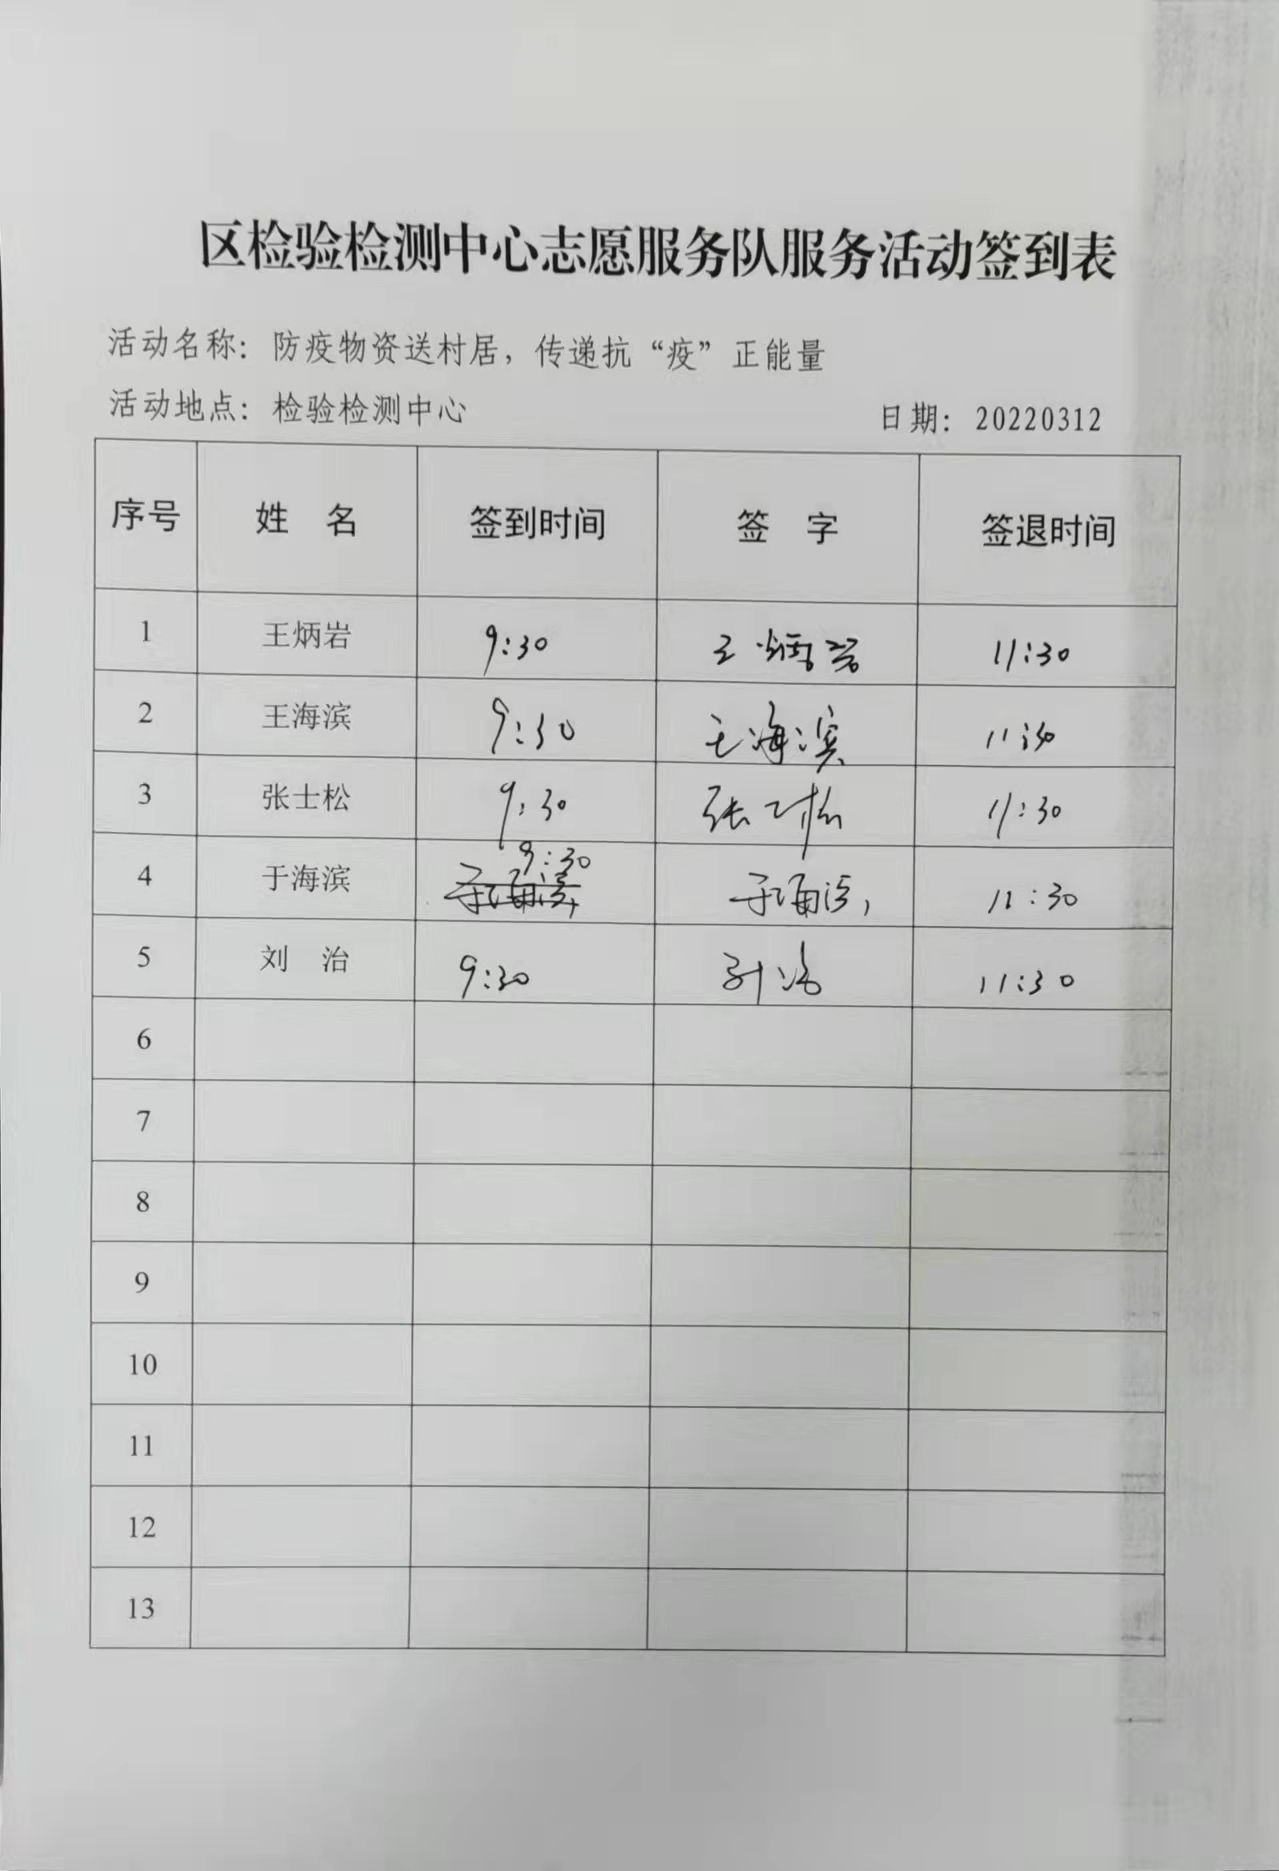 区检验检测中心志愿服务队服务活动签到表
活动名称：防疫物资送村居，传递抗“疫”正能量
活动地点：检验检测中心 日期：20220312
序号 姓 名 签到时间 签 字 签退时间
1 王炳岩 9:30 王炳岩 11:30
2 王海滨 9:30 王海滨 11:30
3 张士松 9:30 张士松 11:30
4 于海滨 9:30 于海滨 11:30
5 刘 治 9:30 刘治 11:30
6
7
8
9
10
11
12
13